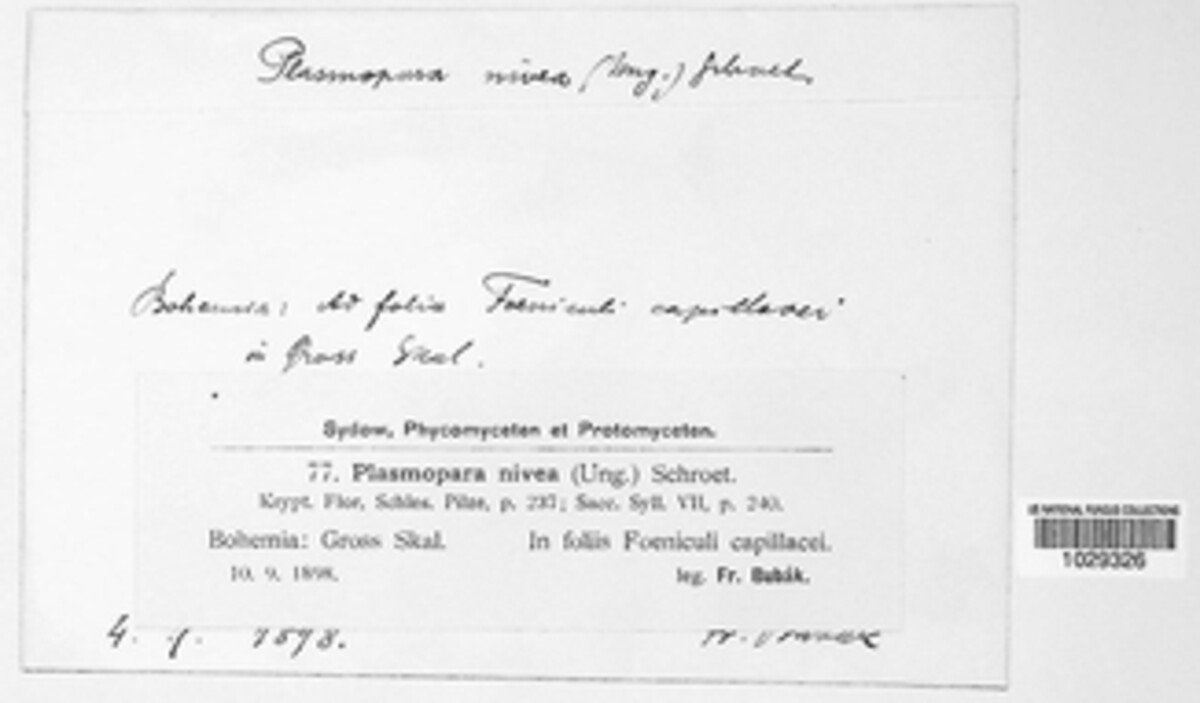 Plasmopara nivea (Ung.) Schroet.
Bohemia: Ad folia Foeniculi capillacei
in Gross Skal.
Sydow, Phycomyceten et Protomyceten.
77. Plasmopara nivea (Ung.) Schroet.
Krypt. Flor, Schles. Pilze, p. 237; Sacc. Syll. VII, p. 240.
Bohemia: Gross Skal. In foliis Foeniculi capillacei.
10. 9. 1898. leg. Fr. Bubák.
US NATIONAL FUNGUS COLLECTIONS
1029326